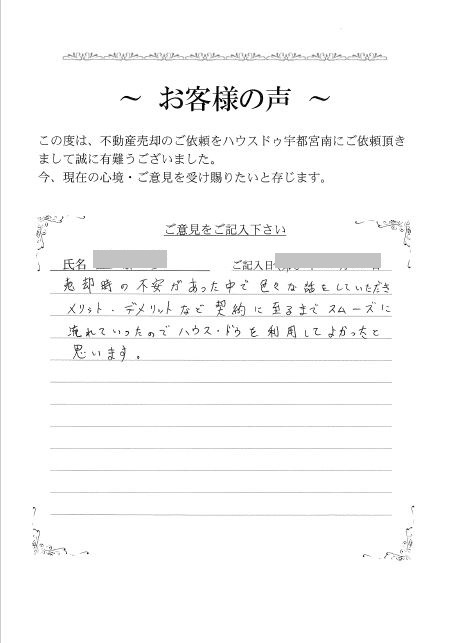 ～ お客様の声 ～
この度は、不動産売却のご依頼をハウスドゥ宇都宮南にご依頼頂き
まして誠に有難うございました。
今、現在の心境・ご意見を受け賜りたいと存じます。
ご意見をご記入下さい
氏名
ご記入日
売却時の不安があった中で色々な話をしていただき
メリット・デメリットなど契約に至るまでスムーズに
流れていったのでハウス・ドゥを利用してよかったと
思います。